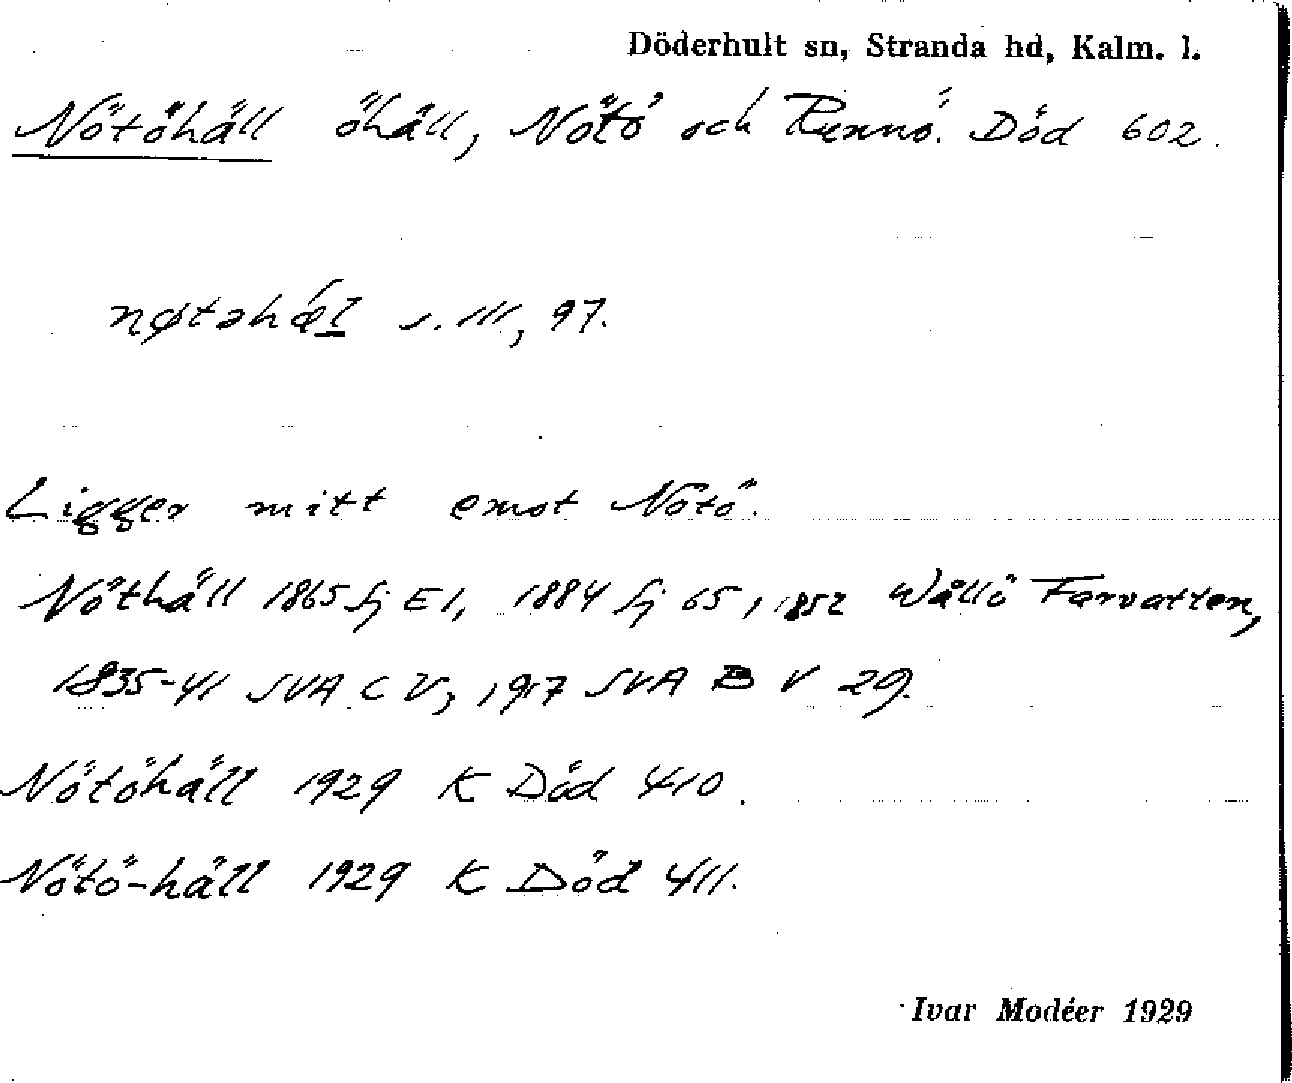 Döderhult sn, Stranda hd, Kalm. l.
Nötöhäll öhäll, Nötö och Runnö. Död 602.
nøtəhæ̀l s. III, 97.
Ligger mitt emot Nötö.
Nöthäll 1865 Sj E1, 1884 Sj 65, 1852 Wållö Farvatten,
1835-41 SVA C V, 1917 SVA B V 29.
Nötöhäll 1929 K Död 410.
Nötö-häll 1929 K Död 411.
Ivar Modéer 1929